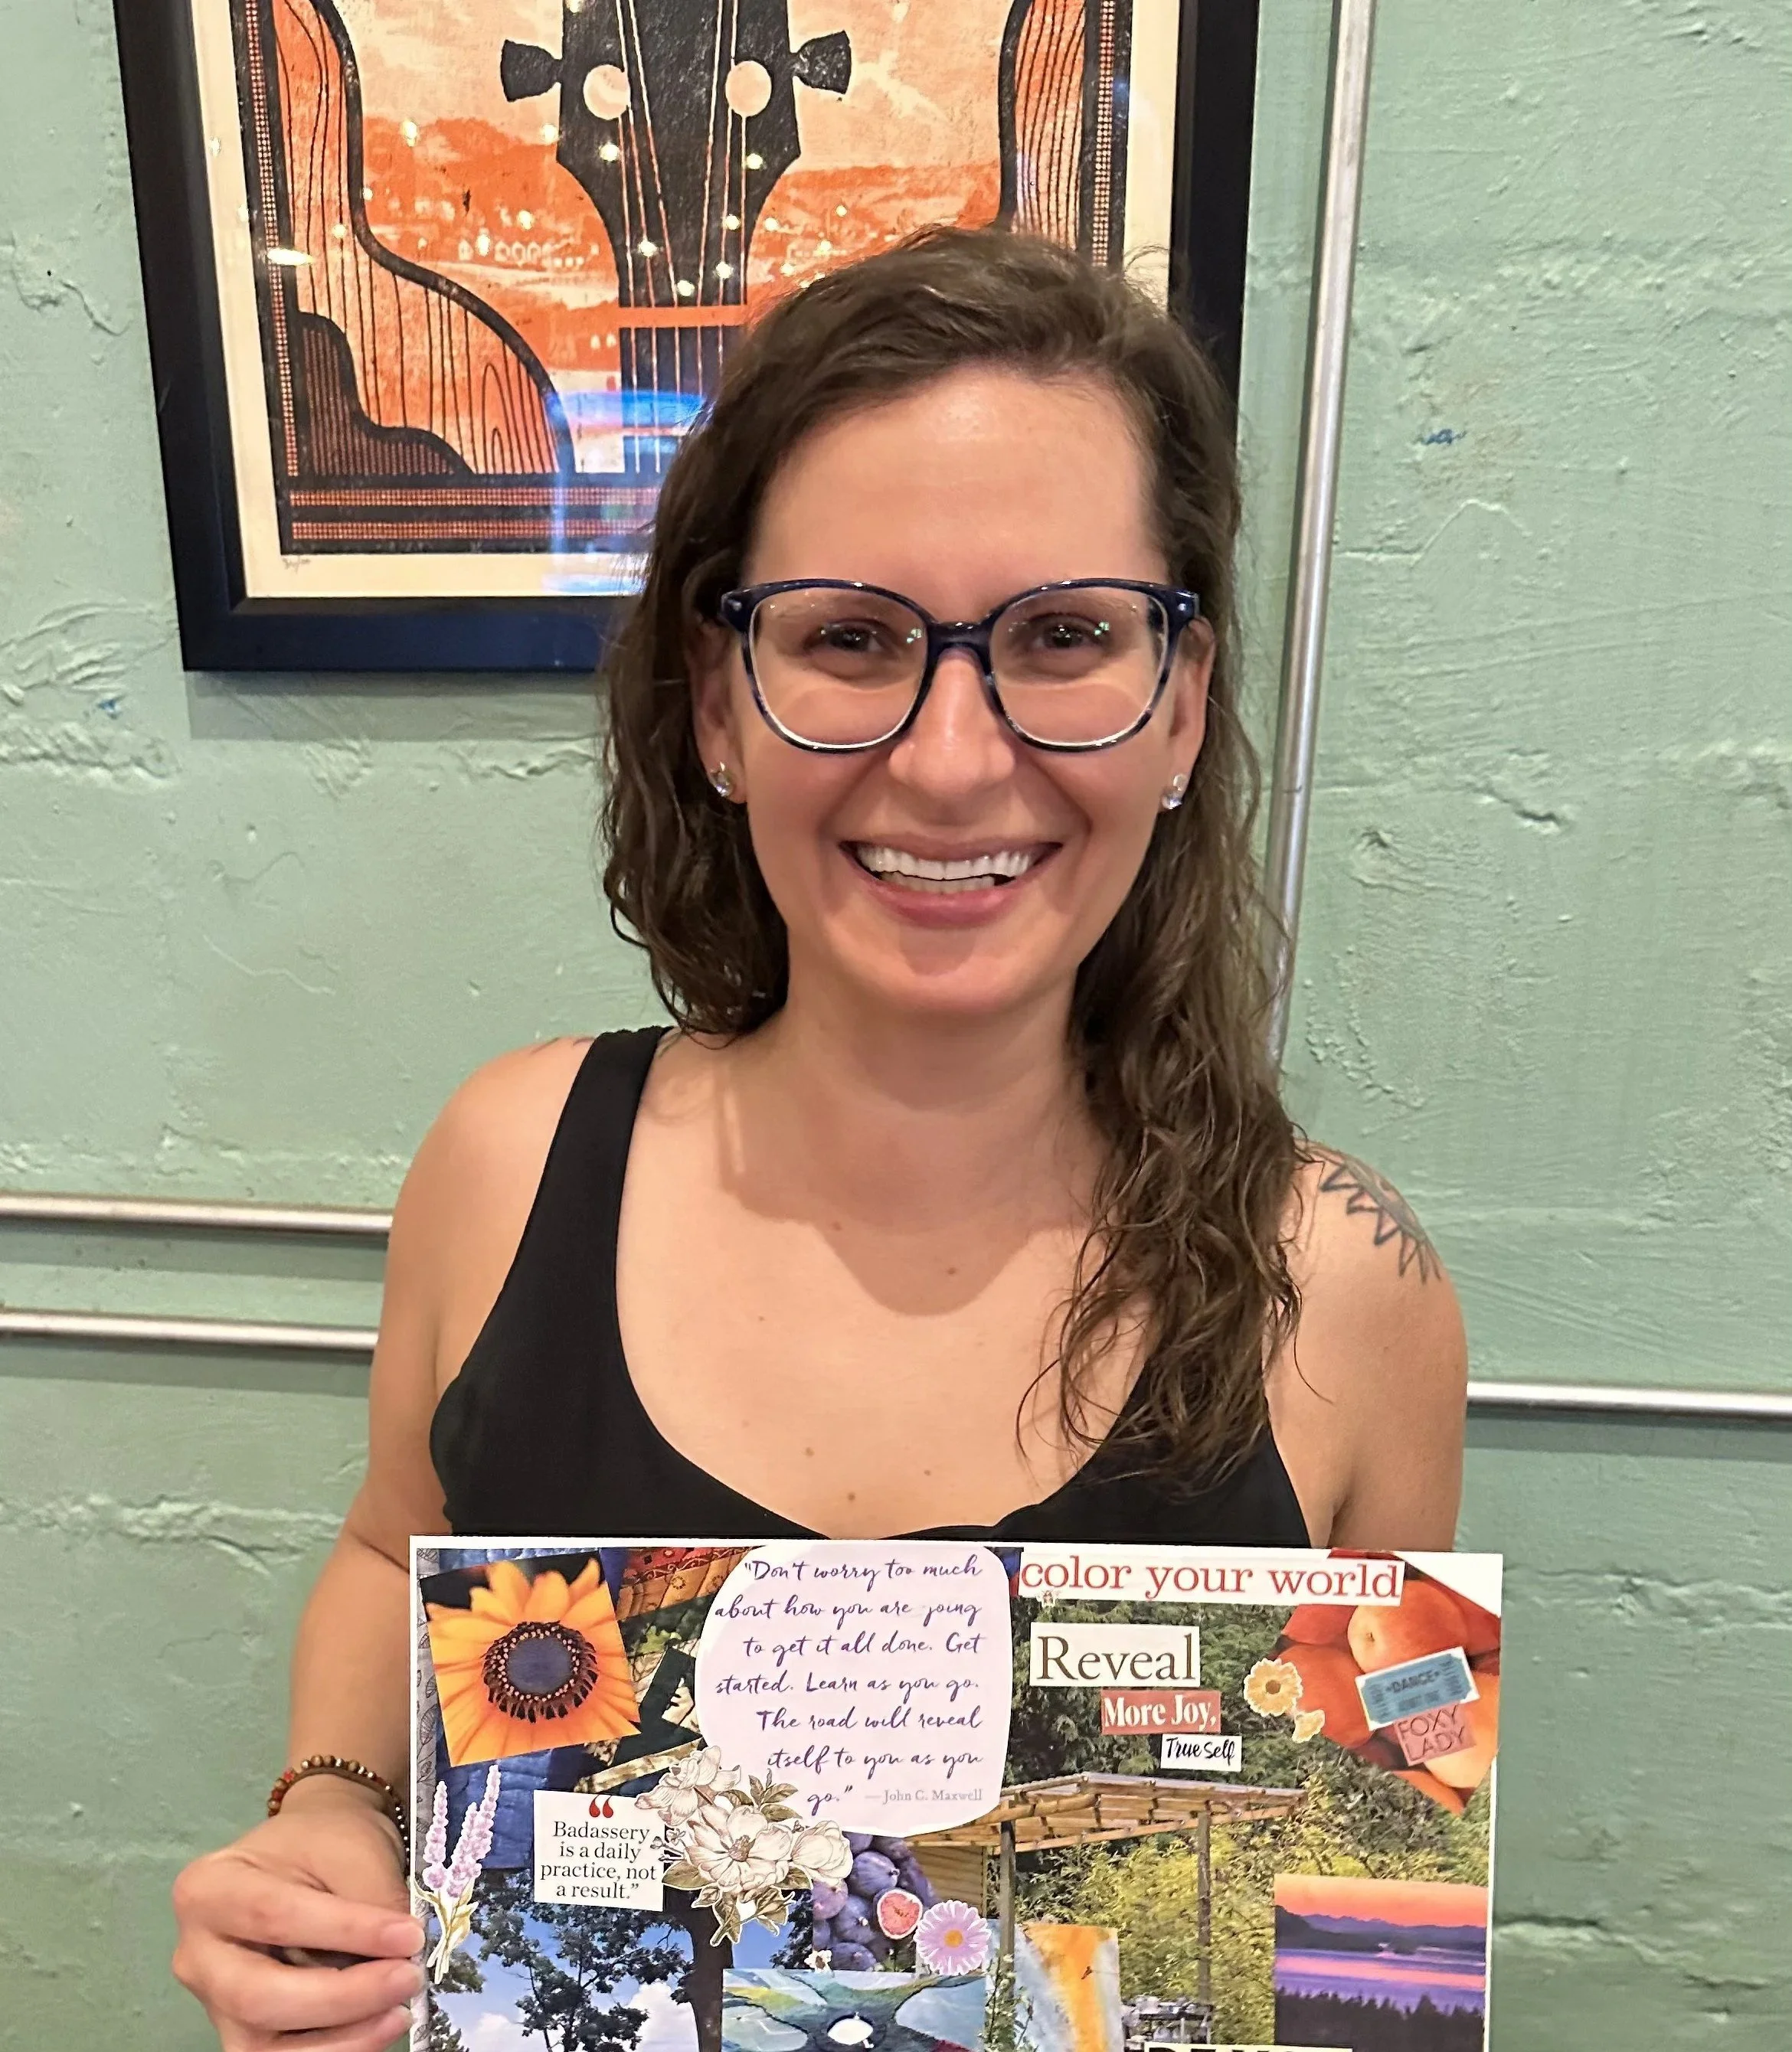 "Don't worry too much
about how you are going
to get it all done. Get
started. Learn as you go.
The road will reveal
itself to you as you
go." — John C. Maxwell
color your world
Reveal
More Joy,
True Self
DANCE
FOXY
LADY
“
Badassery
is a daily
practice, not
a result.”